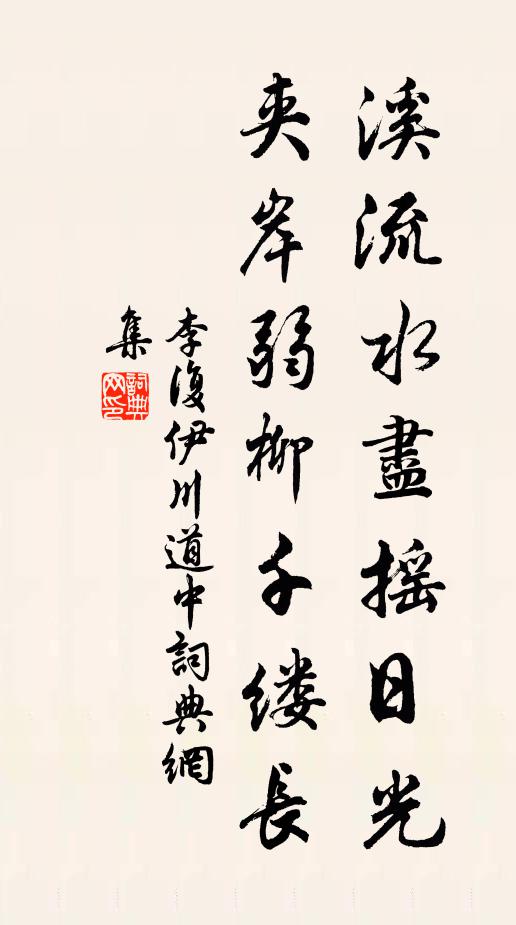 溪流水盡揺日光
夾岸弱柳千缕長
李復伊川道中詞典網
集
詞典
网印